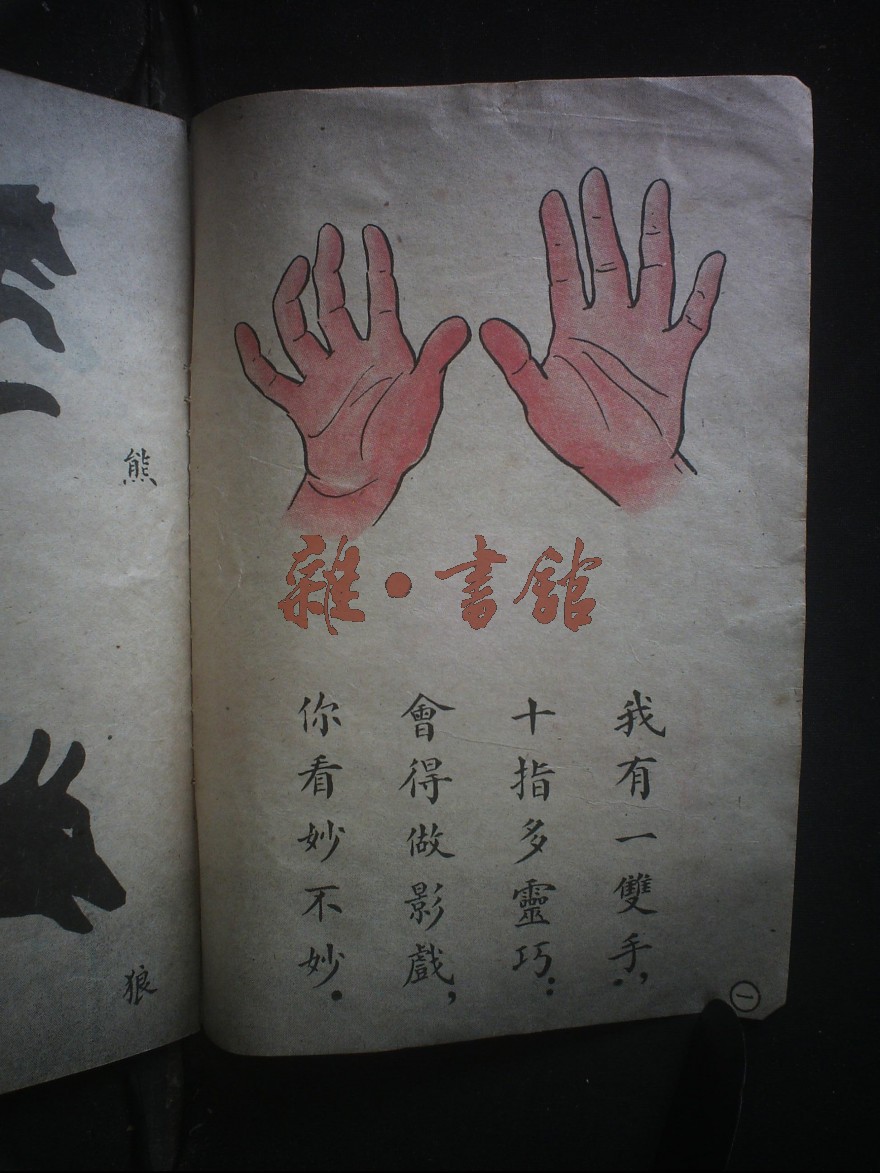 我有一雙手，
十指多靈巧：
會得做影戲，
你看妙不妙．
一
熊
狼
雜·書館